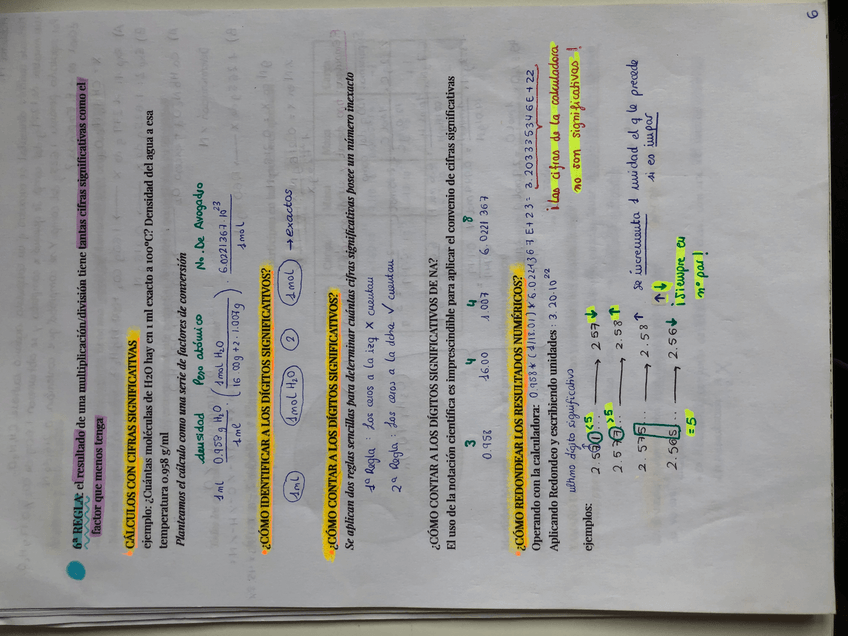 6ª REGLA: el resultado de una multiplicación/división tiene tantas cifras significativas como el
factor que menos tenga
CÁLCULOS CON CIFRAS SIGNIFICATIVAS
ejemplo: ¿Cuántas moléculas de H2O hay en 1 ml exacto a 100ºC? Densidad del agua a esa
temperatura 0.958 g/ml
Planteamos el cálculo como una serie de factores de conversión
densidad Peso atómico No. De Avogadro
1 ml 0.958 g H2O / 1 ml ( 1 mol H2O / (16.00g + 2·1.007g) ) 6.0221367 10^23 / 1 mol
¿CÓMO IDENTIFICAR A LOS DÍGITOS SIGNIFICATIVOS?
1 ml 1 mol H2O 2 1 mol → exactos
¿CÓMO CONTAR A LOS DÍGITOS SIGNIFICATIVOS?
Se aplican dos reglas sencillas para determinar cuántas cifras significativas posee un número inexacto
1ª Regla: Los ceros a la izq X cuentan
2ª Regla: los ceros a la dcha ✓ cuentan
¿CÓMO CONTAR A LOS DÍGITOS SIGNIFICATIVOS DE NA?
El uso de la notación científica es imprescindible para aplicar el convenio de cifras significativas
3 4 4 8
0.958 16.00 1.007 6.0221 367
¿CÓMO REDONDEAR LOS RESULTADOS NUMÉRICOS?
Operando con la calculadora: 0.958*(1/18.01)*6.0221367E+23= 3.203335346E+22
Aplicando Redondeo y escribiendo unidades: 3.20·10^22
¡Las cifras de la calculadora
no son significativas!
último dígito significativo
ejemplos:
2.570 <5 → 2.57 ↓
2.577 >5 ... → 2.58 ↑
2.575 ... → 2.58 ↑ se incrementa 1 unidad el q le precede
si es impar
2.565 ... → 2.56 ↓ ↑↓ ¡siempre en
nº par!
=5
6